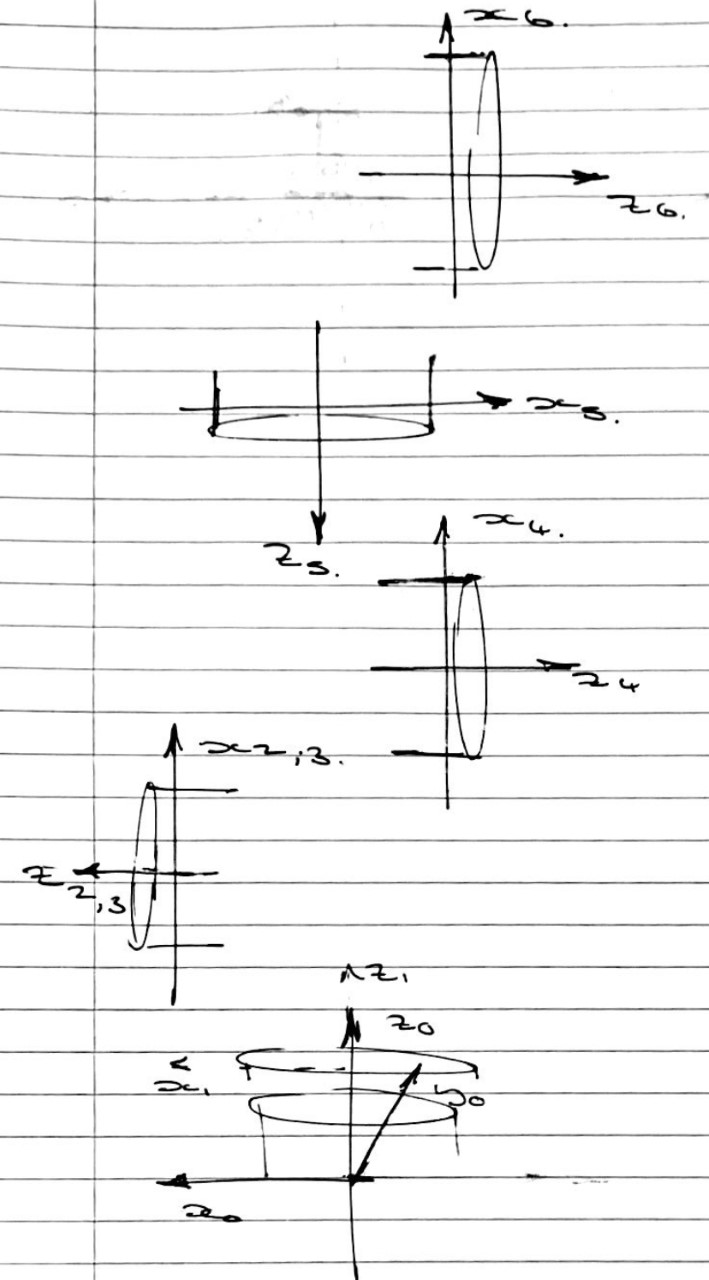 x6.
z6.
x5.
z5.
x4.
z4
x2,3.
z2,3
z1
z0
x1
y0
x0